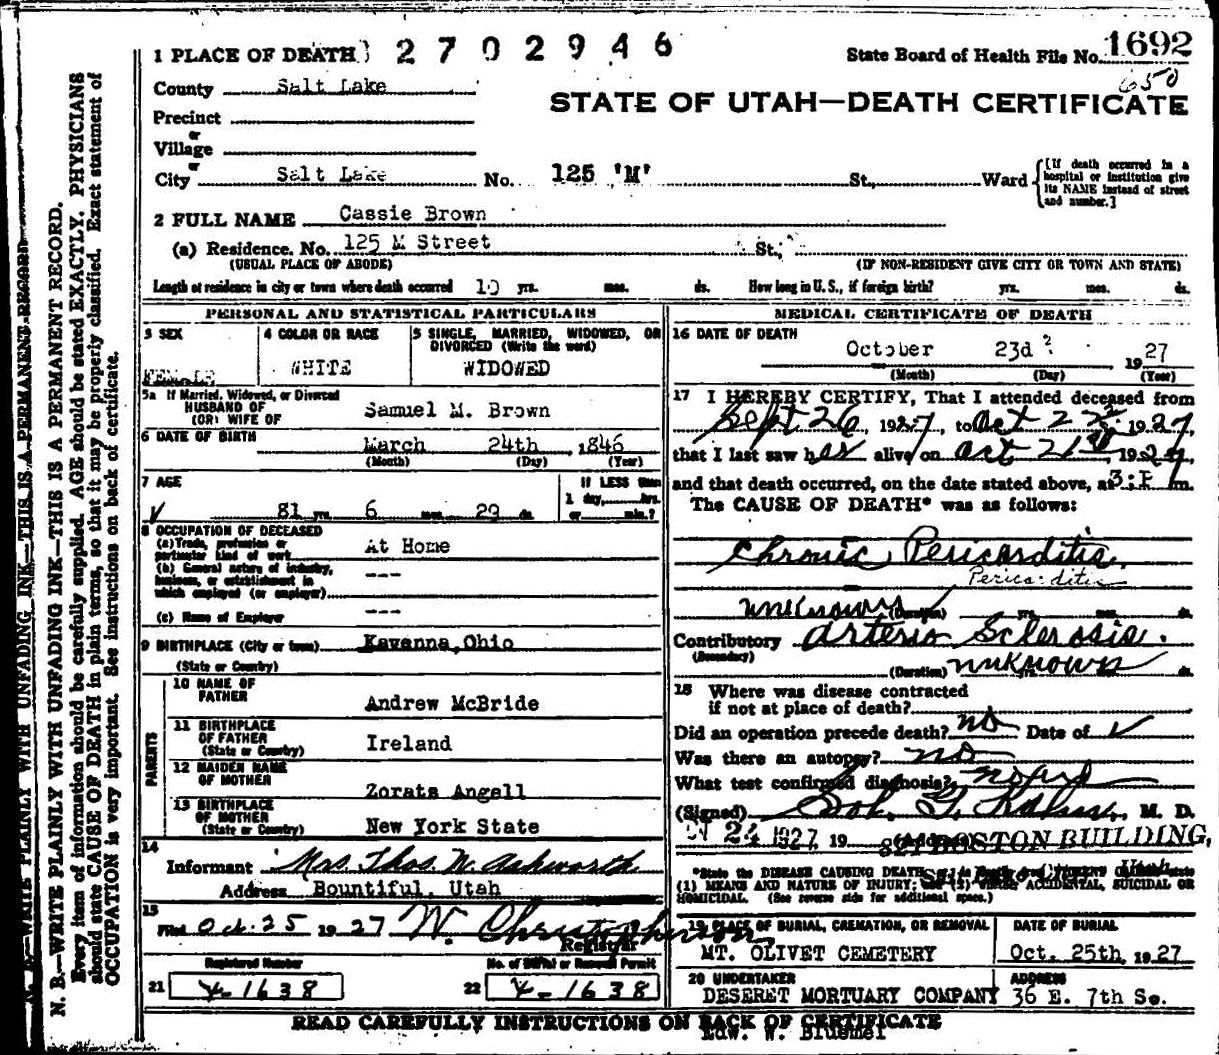 1 PLACE OF DEATH 2 7 0 2 9 4 6
State Board of Health File No. 1692
650
County Salt Lake
STATE OF UTAH—DEATH CERTIFICATE
Precinct
or
Village
or
City Salt Lake No. 125 'M' St., Ward
[If death occurred in a hospital or institution give its NAME instead of street and number.]
2 FULL NAME Cassie Brown
(a) Residence. No. 125 M Street St.,
(USUAL PLACE OF ABODE) (IF NON-RESIDENT GIVE CITY OR TOWN AND STATE)
Length of residence in city or town where death occurred 10 yrs. mos. ds. How long in U. S., if foreign birth? yrs. mos. ds.
PERSONAL AND STATISTICAL PARTICULARS
3 SEX
FEMALE
4 COLOR OR RACE
WHITE
5 SINGLE, MARRIED, WIDOWED, OR DIVORCED (Write the word)
WIDOWED
5a If Married, Widowed, or Divorced
HUSBAND OF
(OR) WIFE OF Samuel M. Brown
6 DATE OF BIRTH
March 24th 1846
(Month) (Day) (Year)
7 AGE
81 yrs. 6 mos. 29 ds.
IF LESS than
1 day, hrs.
or min.?
8 OCCUPATION OF DECEASED
(a) Trade, profession or particular kind of work At Home
(b) General nature of industry, business, or establishment in which employed (or employer) ---
(c) Name of Employer ---
9 BIRTHPLACE (City or town) Kavenna, Ohio
(State or Country)
PARENTS
10 NAME OF FATHER Andrew McBride
11 BIRTHPLACE OF FATHER (State or Country) Ireland
12 MAIDEN NAME OF MOTHER Zorats Angell
13 BIRTHPLACE OF MOTHER (State or Country) New York State
14
Informant Mrs. Thos. W. Ashworth
Address Bountiful, Utah
15
Filed Oct. 25 1927 W. Christopherson
Registrar
Registered Number
21 4-1638
No. of Burial or Removal Permit
22 4-1638
MEDICAL CERTIFICATE OF DEATH
16 DATE OF DEATH
October 23d ? 1927
(Month) (Day) (Year)
17 I HEREBY CERTIFY, That I attended deceased from
Sept 26, 1927, to Oct 22 1927,
that I last saw her alive on Oct 21st, 1927,
and that death occurred, on the date stated above, at 3:P m.
The CAUSE OF DEATH* was as follows:
Chronic Pericarditis,
Pericarditis
unknown (Duration) yrs. mos. ds.
Contributory Arterio Sclerosis.
(Secondary)
(Duration) unknown ds.
18 Where was disease contracted
if not at place of death?
Did an operation precede death? no Date of
Was there an autopsy? no
What test confirmed diagnosis?
(Signed) M. D.
24 1927, 19 BOSTON BUILDING,
*State the DISEASE CAUSING DEATH
(1) MEANS AND NATURE OF INJURY; and (2) whether ACCIDENTAL, SUICIDAL OR
HOMICIDAL. (See reverse side for additional space.)
19 PLACE OF BURIAL, CREMATION, OR REMOVAL
MT. OLIVET CEMETERY
DATE OF BURIAL
Oct. 25th, 1927
20 UNDERTAKER
DESERET MORTUARY COMPANY
ADDRESS
36 E. 7th So.
READ CAREFULLY INSTRUCTIONS ON BACK OF CERTIFICATE
Edw. W. Bluemel
N. B.—WRITE PLAINLY WITH UNFADING INK—THIS IS A PERMANENT RECORD.
Every item of information should be carefully supplied. AGE should be stated EXACTLY. PHYSICIANS
should state CAUSE OF DEATH in plain terms, so that it may be properly classified. Exact statement of
OCCUPATION is very important. See instructions on back of certificate.